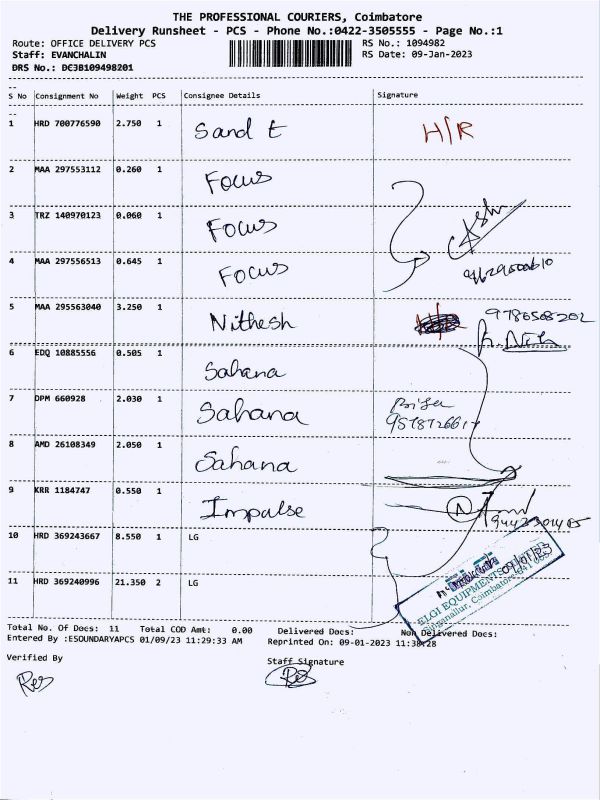 THE PROFESSIONAL COURIERS, Coimbatore
Delivery Runsheet - PCS - Phone No.:0422-3505555 - Page No.:1
Route: OFFICE DELIVERY PCS RS No.: 1094982
Staff: EVANCHALIN RS Date: 09-Jan-2023
DRS No.: DC3B109498201
S No Consignment No Weight PCS Consignee Details Signature
1 HRD 700776590 2.750 1 Sand t H/R
2 MAA 297553112 0.260 1 Focus
3 TRZ 140970123 0.060 1 Focus
4 MAA 297556513 0.645 1 Focus
5 MAA 295563040 3.250 1 Nithesh 9786508202
6 EDQ 10885556 0.505 1 Sahana
7 DPM 660928 2.030 1 Sahana
8 AMD 26108349 2.050 1 Sahana
9 KRR 1184747 0.550 1 Impulse
10 HRD 369243667 8.550 1 LG
11 HRD 369240996 21.350 2 LG
ELGI EQUIPMENTS
Singanallur, Coimbatore-641 005
Total No. Of Docs: 11 Total COD Amt: 0.00 Delivered Docs: Non Delivered Docs:
Entered By :ESOUNDARYAPCS 01/09/23 11:29:33 AM Reprinted On: 09-01-2023 11:38:28
Verified By Staff Signature